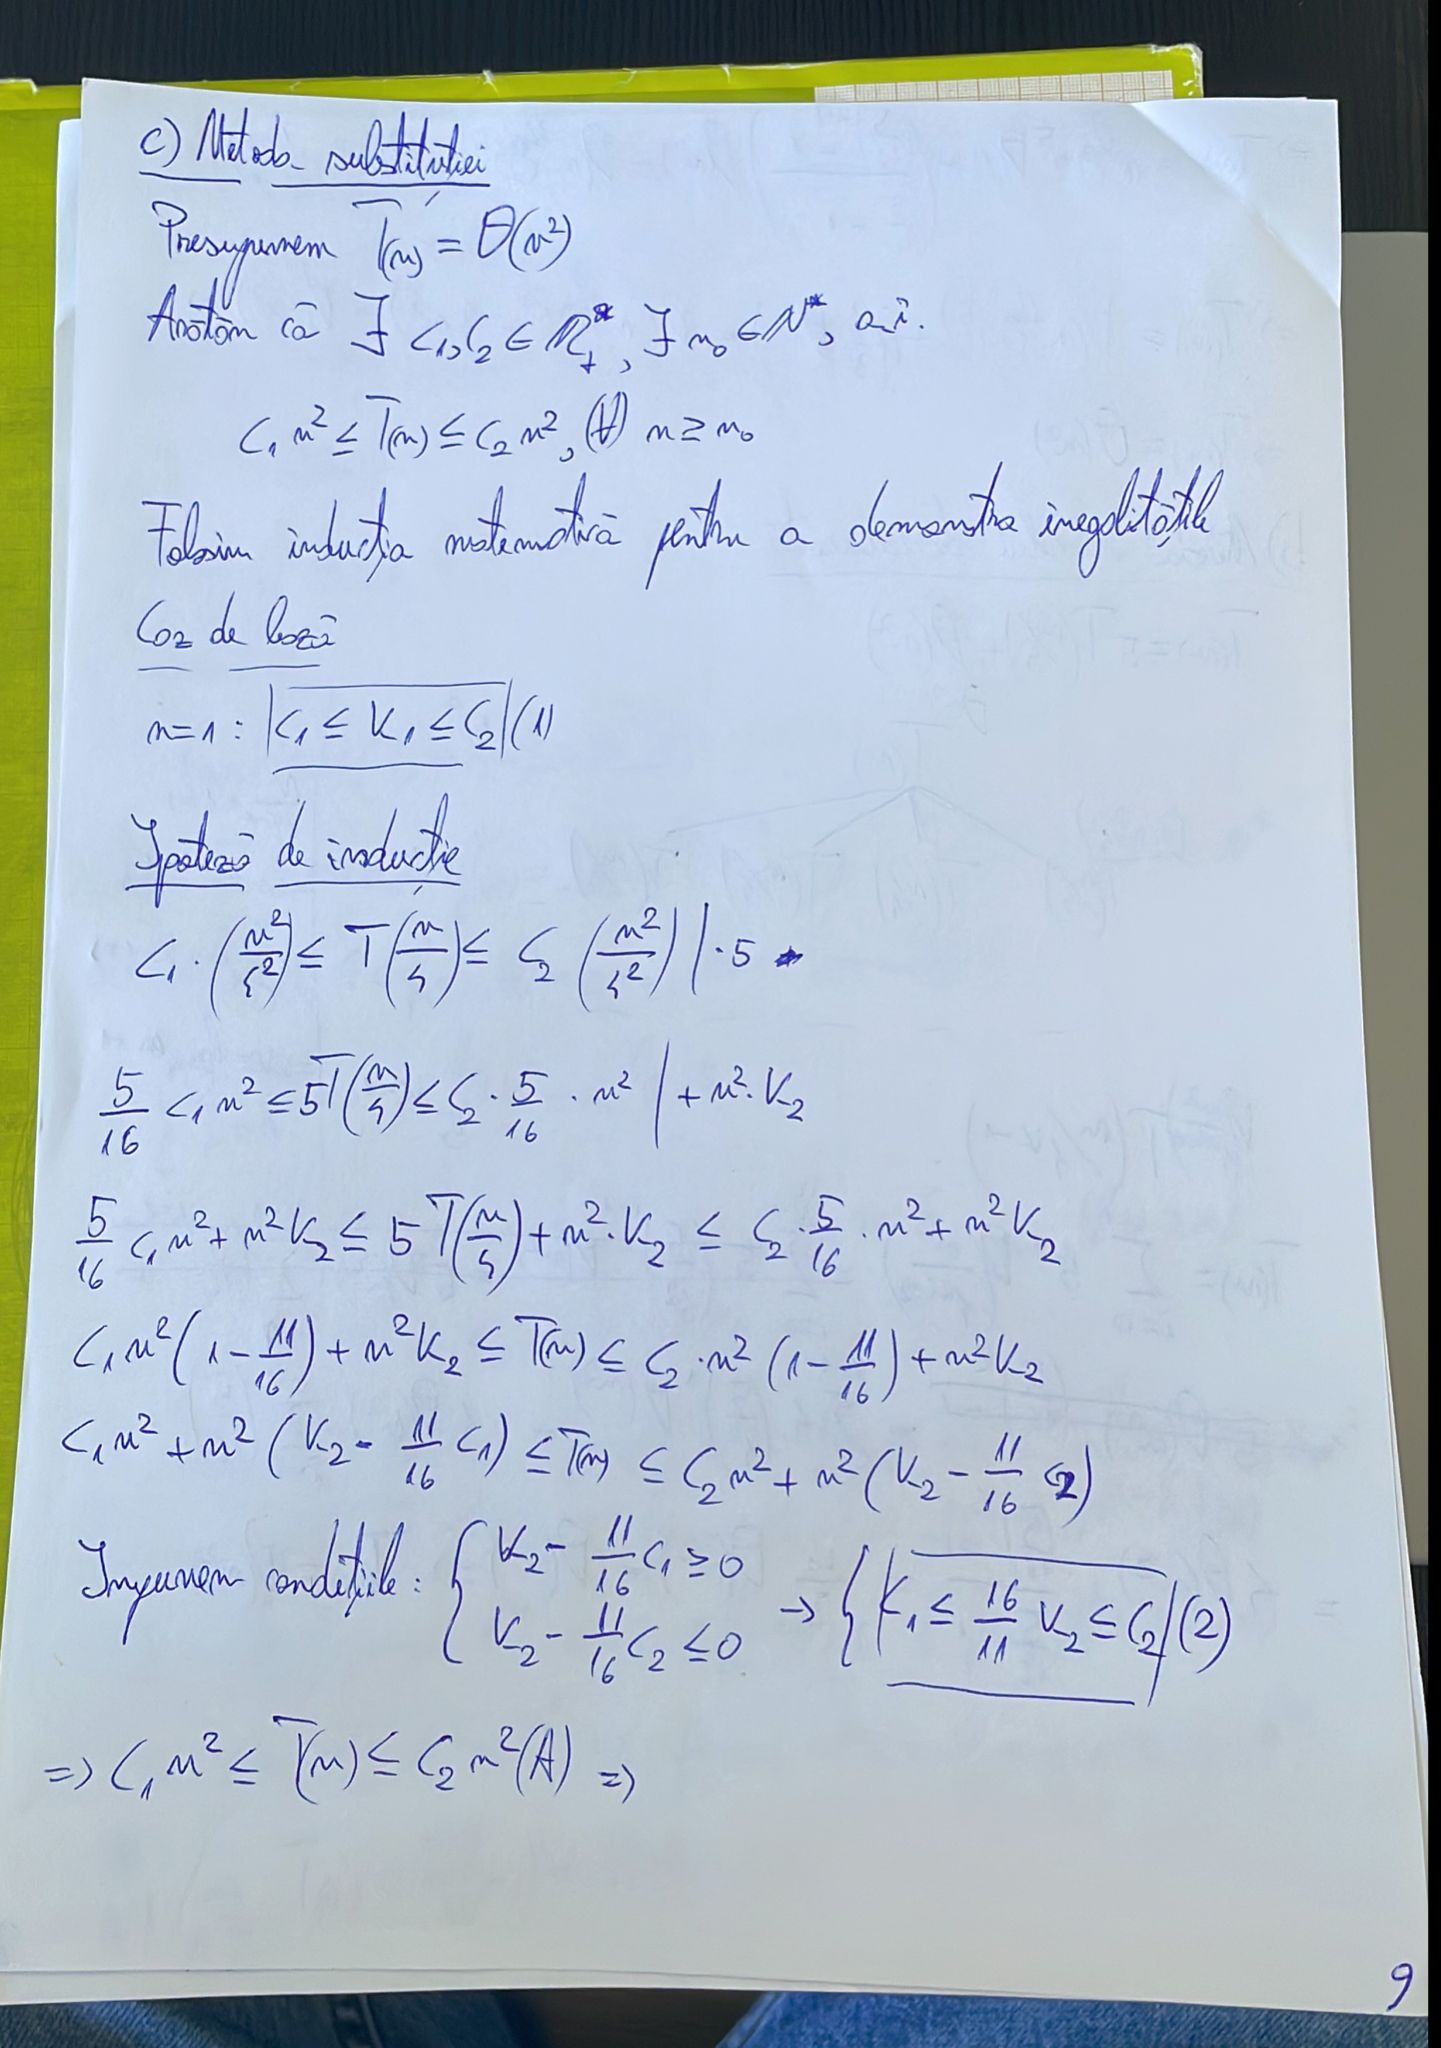 c) Metoda substituției
Presupunem T(n) = Θ(n²)
Arătăm că ∃ c₁, c₂ ∈ ℝ₊*, ∃ n₀ ∈ ℕ*, a.î.
c₁n² ≤ T(n) ≤ c₂n², (∀) n ≥ n₀
Folosim inducția matematică pentru a demonstra inegalitățile
Caz de bază
n=1 : |c₁ ≤ K₁ ≤ c₂| (1)
Ipoteză de inducție
c₁ · (n²/4²) ≤ T(n/4) ≤ c₂ (n²/4²) | · 5
5/16 c₁n² ≤ 5T(n/4) ≤ c₂ · 5/16 · n² | + n² · K₂
5/16 c₁n² + n²K₂ ≤ 5T(n/4) + n² · K₂ ≤ c₂ · 5/16 · n² + n²K₂
c₁n²(1 - 11/16) + n²K₂ ≤ T(n) ≤ c₂ · n²(1 - 11/16) + n²K₂
c₁n² + n²(K₂ - 11/16 c₁) ≤ T(n) ≤ c₂n² + n²(K₂ - 11/16 c₂)
Impunem condițiile : { K₂ - 11/16 c₁ ≥ 0
K₂ - 11/16 c₂ ≤ 0 → { |c₁ ≤ 16/11 K₂ ≤ c₂| (2)
=> c₁n² ≤ T(n) ≤ c₂n² (A) =>
9